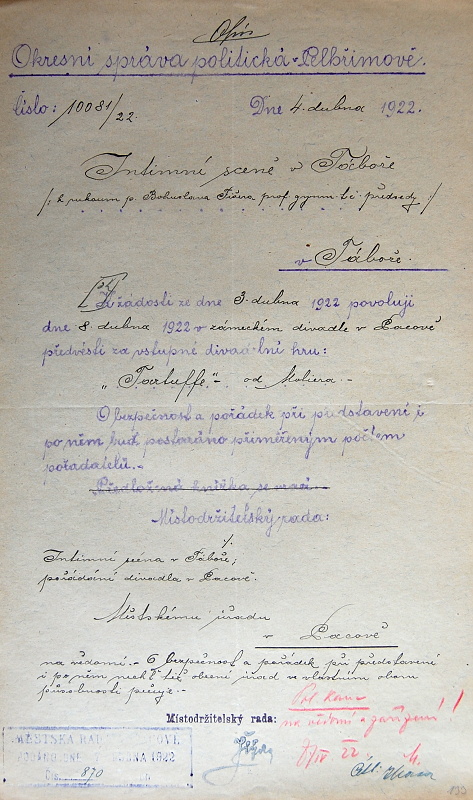 Opis
Okresní správa politická Pelhřimově.
Číslo: 10081/22. Dne 4. dubna 1922.
Intimní scéně v Táboře
/: k rukoum p. Bohuslava prof. gymn. t. č. předsedy :/
v Táboře.
K žádosti ze dne 3. dubna 1922 povoluji
dne 8. dubna 1922 v zámeckém divadle v Pacově
předvésti za vstupné divadelní hru:
„Tartuffe" - od Moliera. -
O bezpečnost a pořádek při představení i
po něm buď postaráno přiměřeným počtem
pořadatelů. -
Předložená knížka se vrací. -
Místodržitelský rada:
%
Intimní scéna v Táboře;
pořádání divadla v Pacově.
Městskému úřadu
v Pacově
na vědomí. - O bezpečnost a pořádek při představení
i po něm nechť též obecní úřad ve vlastním oboru
působnosti pečuje. -
Místodržitelský rada:
na vědomí a zařízení!
8/IV 22.
MĚSTSKÁ RADA
DUBNA 1922
Čís. 870
133